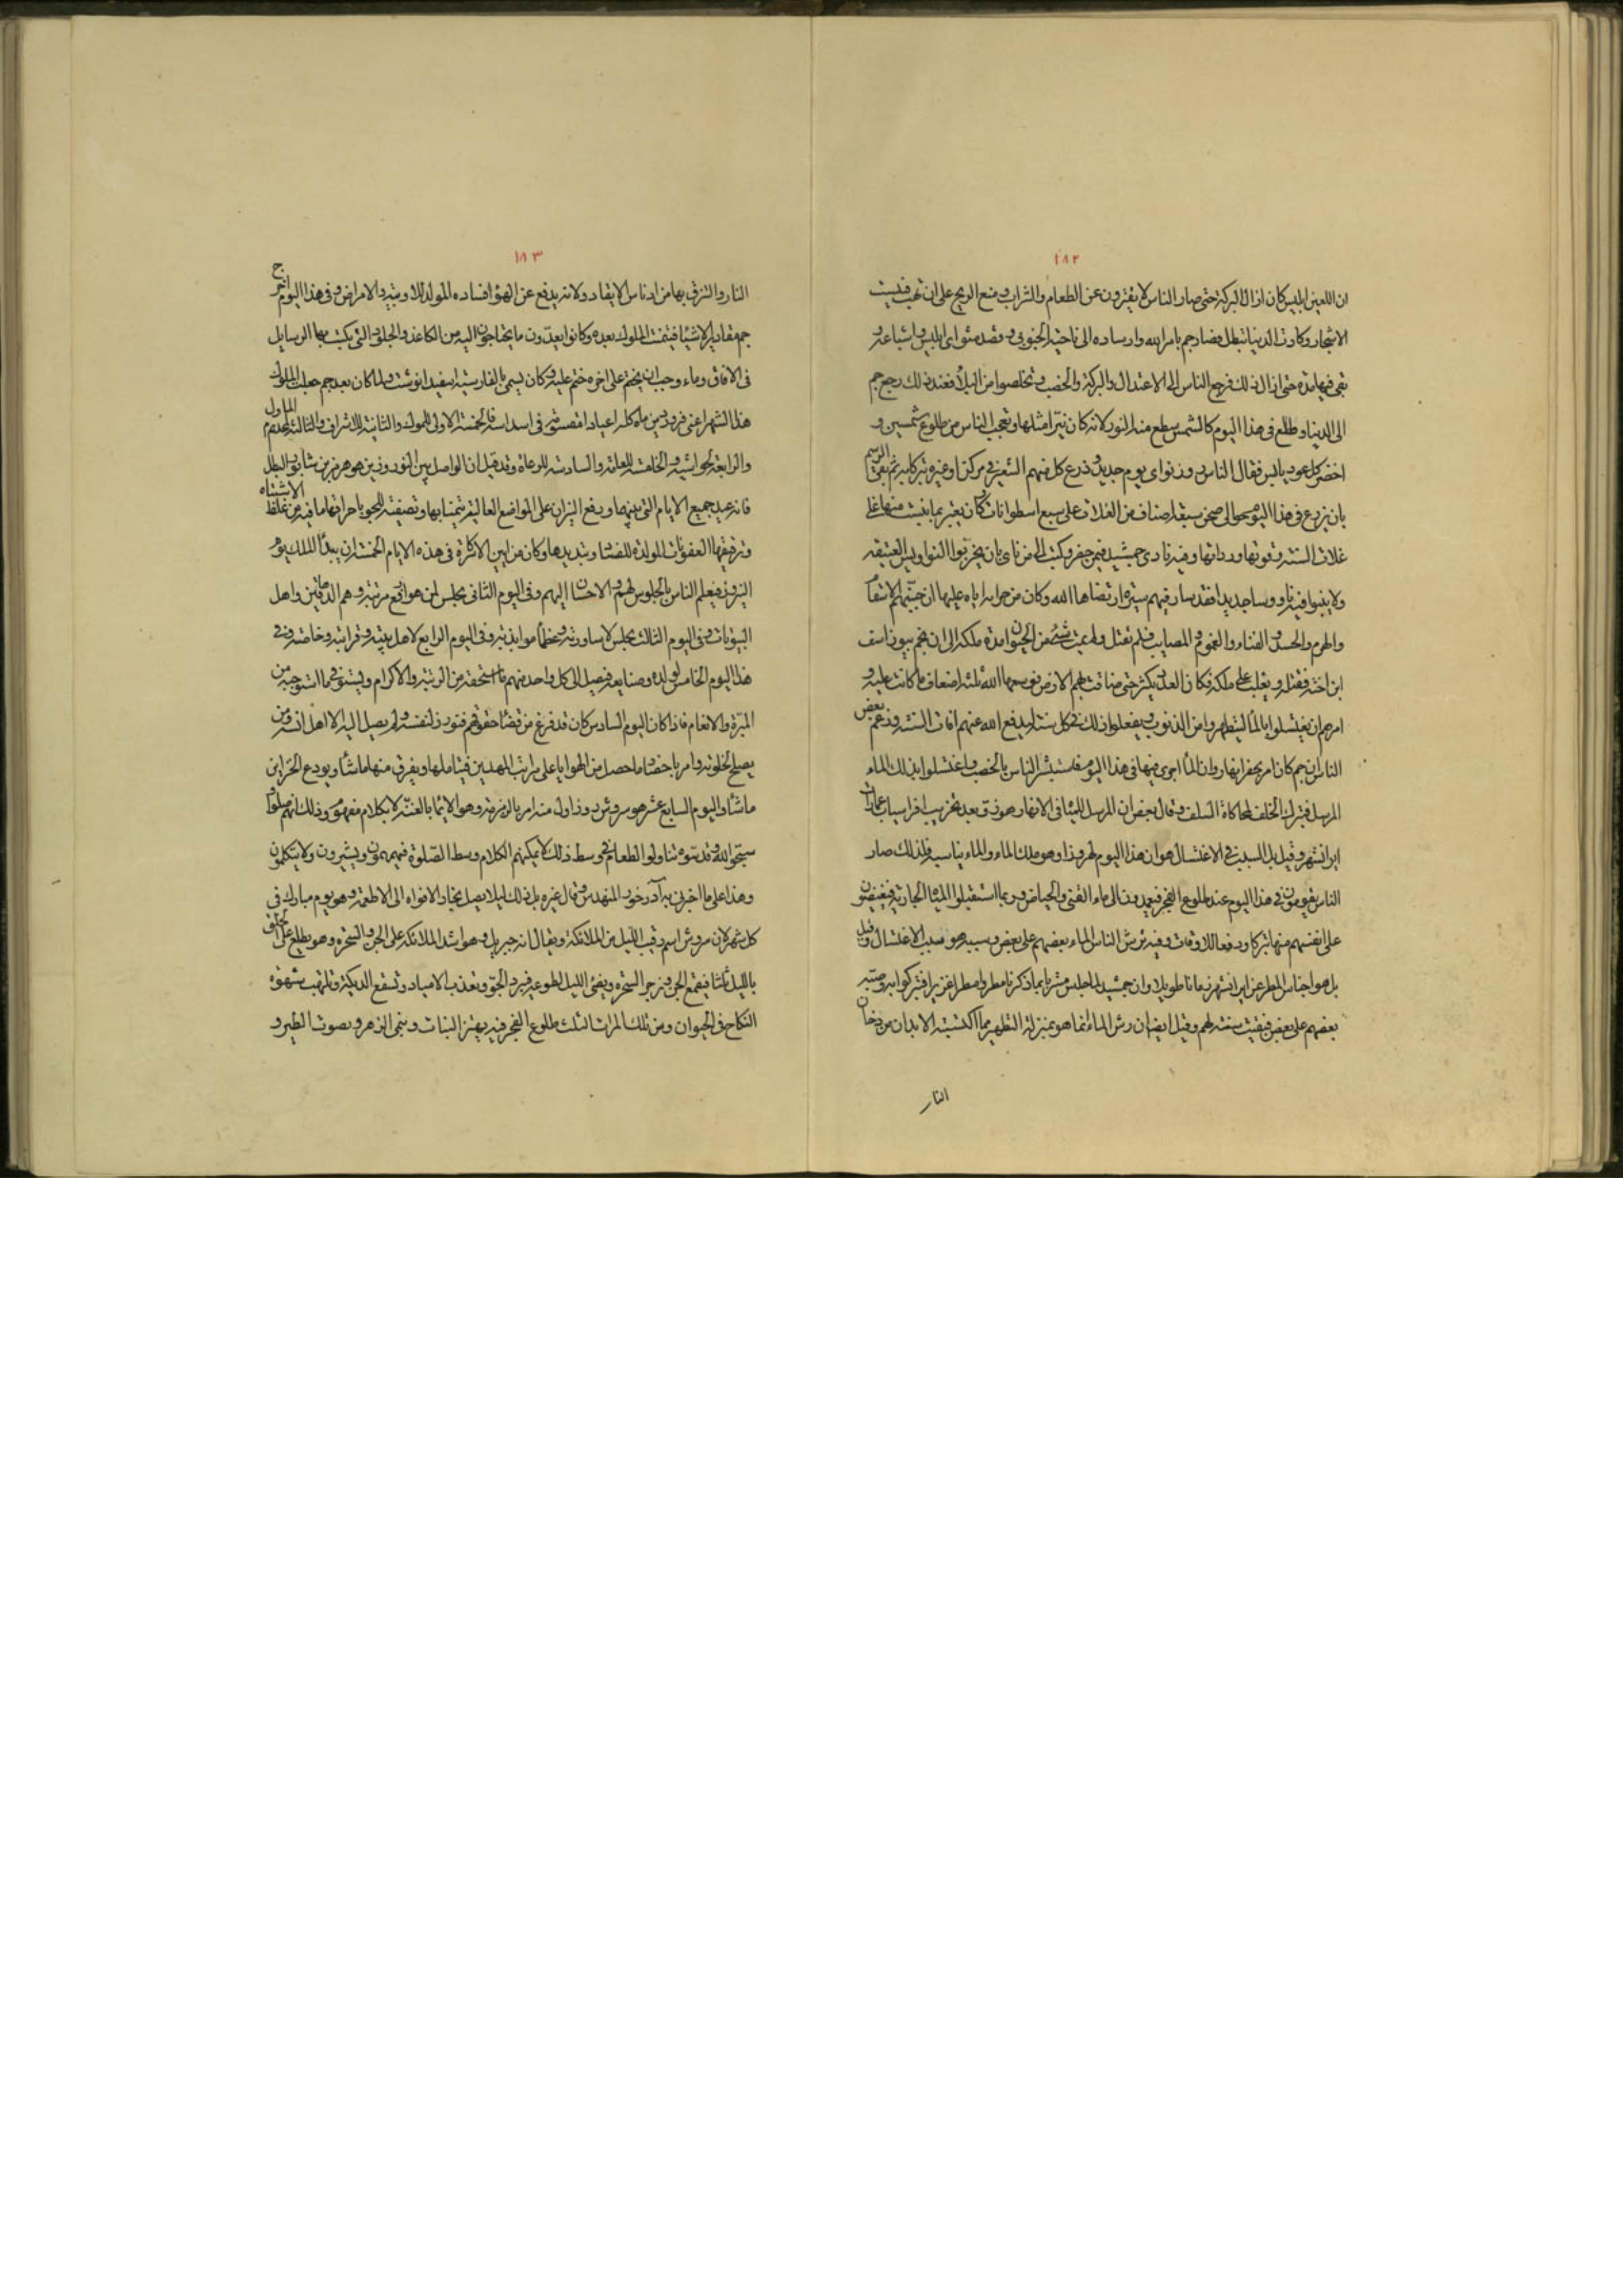 ١٨٢
ان اللعين ابليس كان ازال البركة حتى صار الناس لا يفترون عن الطعام والشراب ومنع الريح على ان تهب فيبست
الاشجار وكادت الدنيا تبطل فصار جم بامر الله وارساده الى ناحية الجنوب وقصد مثوى ابليس واشياعه و
بقى فيها مدة حتى ازال ذلك فرجع الناس الى الاعتدال والبركة والخصب وتخلصوا من البلاء فعند ذلك رجع جم
الى الدنيا وطلع فى هذا اليوم كالشمس سطع منه النور لانه كان نيرا مثلها وتعجب الناس من طلوع شمسين و
اخضر كل عود يابس فقال الناس روز نو اى يوم جديد وزرع كل منهم الشعير فى مركن او غيره تبركا به ثم بقى الرسم
بان يزرع فى هذا اليوم حوالى صحن سبعة اصناف من الغلات على سبع اسطوانات وكان يعتبر بما ينبت منها غلا
غلات السنة وقوتها ورداتها وفيه نادى جمشيد فيمن حضر وكتب الى من نأى بان يخربوا النواويس العتيقة
ولا يبنوا فيه ناووسا جديدا فقد سار فيهم سيرة ارتضاها الله وكان من جزائه اياه عليها ان جنبهم الاسقام
والهرم والحسد والفناء والغموم والمصايب فلم تعتل ولم يمت شئ من الحيوان مدة ملكه الى ان نجم بيوراسف
ابن اخته فقتله وتغلب على ملكه فكان العدد يكثر حتى ضاقت بهم الارض فوسعها الله ثلثة اضعاف ما كانت عليه و
امرهم ان يغتسلوا بالماء ليتطهروا من الذنوب ويفعلوا ذلك فى كل سنة ليدفع الله عنهم آفات السنة وزعم بعض
الناس ان جم كان امر بحفر انهار وان الماء اجرى فيها فى هذا اليوم فاستبشر الناس بالخصب واغتسلوا بذلك الماء
المرسل فتبرك الخلف لمحاكاة السلف وقال بعض ان المرسل للمياه فى الانهار هو زو بعد تخريب افراسياب عمارات
ايرانشهر وقيل بل السبب فى الاغتسال هو ان هذا اليوم لهروذا وهو ملك الماء والماء يناسبه فلذلك صار
الناس يقومون فى هذا اليوم عند طلوع الفجر فيعمدون الى ماء القنى والحياض وربما استقبلوا المياه الجارية فيفيضون
على انفسهم منها تبركا ودفعا للاوقات وفيه يرش الناس الماء بعضهم على بعض وسببه هو سبب الاغتسال وقيل
بل هو احتباس المطر عن ايرانشهر زمانا طويلا وان جمشيد لما جلس مبشرا بما ذكرنا مطروا مطرا غزيرا فتبركوا به وصبه
بعضهم على بعض فبقيت سنة لهم وقيل ايضا ان رش الماء انما هو بمنزلة التطهير مما اكتسبته الابدان من دخان
النار
١٨٣
النار والتزق بها من ادناس الايقاد ولانه يدفع عن الهواء افساده المولد للاوبية والامراض وفى هذا اليوم اخرج
جم مقادير الاشياء فتيمنت الملوك بعده وكانوا يعدون ما يحتاجون اليه من الكاغذ والجلود التى يكتب بها الرسايل
فى الافاق وماء وجب ان يختم على اخره ختم عليه وكان يسمى بالفارسية اسفيدانوشت ولما كان بعد جم جعلت الملوك
هذا الشهر اعنى فروردين ماه كله اعيادا مقسمة فى اسداسه فالخمسة الاولى للملوك والثانية للاشراف والثالثة لخدم الملوك
والرابعة لحواشيه والخامسة للعامة والسادسة للرعاة وقد قيل ان الواصل بين النوروزين هو هرمز بن شابور البطل
فانه عيد جميع الايام التى بينهما ورفع النيران على المواضع العالية تيمنا بها وتصفية للجو باحراقها ما فيه من غلظ الاشياء
وترقيقها العفونات المولدة للفساد وتبديدها وكان من ايين الاكاسرة فى هذه الايام الخمسة ان يبدأ الملك يوم
النيروز فيعلم الناس بالجلوس لهم والاحسان اليهم وفى اليوم الثانى يجلس لمن هو ارفع مرتبة وهم الدهاقين واهل
البيوتات وفى اليوم الثالث يجلس لاساورته وعظماء موابذته وفى اليوم الرابع لاهل بيته وقرابته وخاصته وفى
هذا اليوم الخامس لولده وصنايعه فيصل الى كل واحد منهم ما استحقه من الرتبة والاكرام ويستوفى ما استوجبه من
المبرة والانعام فاذا كان اليوم السادس كان قد فرغ من قضاء حقوقهم فنورز لنفسه ولم يصل اليه الا اهل انسه ومن
يصلح لخلوته وامر باحضار ما حصل من الهدايا على مراتب المهدين فيتاملها ويفرق منها ماشاء ويودع الخزاين
ماشاء واليوم السابع عشر هو سروش روز اول من امر بالزمزمة وهو الايماء بالغنة لا بكلام مفهوم وذلك انهم صلوا و
سبحوا الله وقدسوه تناولوا الطعام فى وسط ذلك لا يمكنهم الكلام وسط الصلوة فيهمهمون ويشيرون ولا يتكلمون
وهذا على ما اخبرنى به آذرخور المهندس وقال غيره بل ذلك ليلا يصل بخار الافواه الى الاطعمة وهو يوم مبارك فى
كل شهر لان سروش اسم رقيب الليل من الملائكة ويقال انه جبريل وهو اشد الملائكة على الجن والسحرة وهو يطلع على الخلق
بالليل ثلثا فيقمع الجن ويزجر السحرة ويضئ الليل لطلوعه فيبرد الجو وتعذب الامياه وتسقع الديكة وتلتهب شهوة
النكاح فى الحيوان ومن تلك المرات الثلث طلوع الفجر فيه يهتز النبات وينمى الزهر ويصوت الطير و